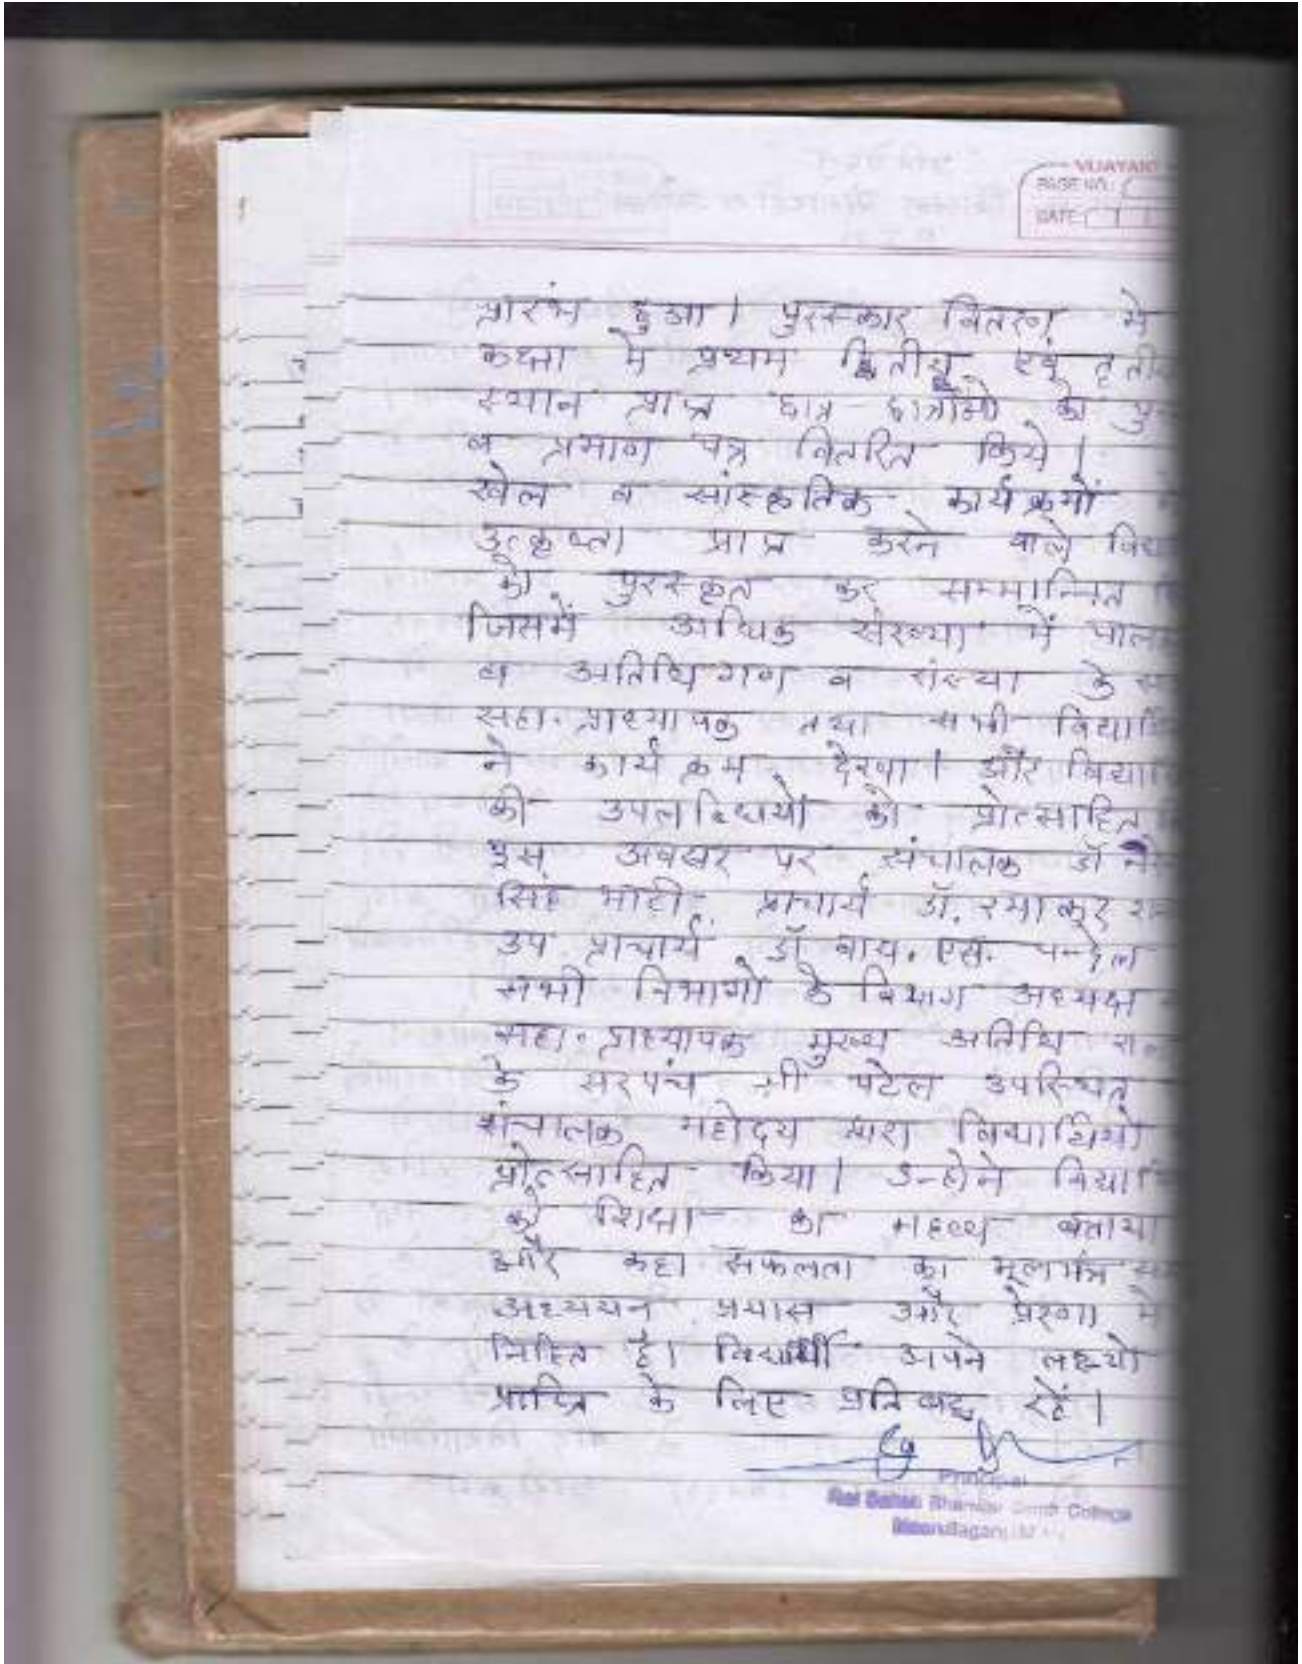 VIJAYANT
PAGE NO.:
DATE
प्रारंभ हुआ। पुरस्कार वितरण मे
कक्षा मे प्रथम द्वितीय एवं तृतीय
स्थान प्राप्त छात्र-छात्राओं को
व प्रमाण पत्र वितरित किये।
खेल व सांस्कृतिक कार्यक्रमों
उत्कृष्टता प्राप्त करने वाले
को पुरस्कृत कर सम्मानित
जिसमें अधिक संख्या में
व अतिथिगण व संस्था के
सहा. प्राध्यापक तथा सभी
ने कार्यक्रम देखा। और
की उपलब्धियों को प्रोत्साहित
इस अवसर पर संचालक डॉ
सिंह भाटी, प्राचार्य डॉ.
उप प्राचार्य डॉ वाय. एस. चन्देल
सभी विभागो के विभाग अध्यक्ष
सहा. प्राध्यापक मुख्य अतिथि
के सरपंच श्री पटेल उपस्थित
संचालक महोदय द्वारा विद्यार्थियो
प्रोत्साहित किया। उन्होने
को शिक्षा का महत्व बताया
और कहा सफलता का मूलमंत्र
अध्ययन प्रयास और प्रेरणा मे
निहित है। विद्यार्थी अपने लक्ष्यो
प्राप्ति के लिए प्रतिबद्ध रहें।
Principal
College